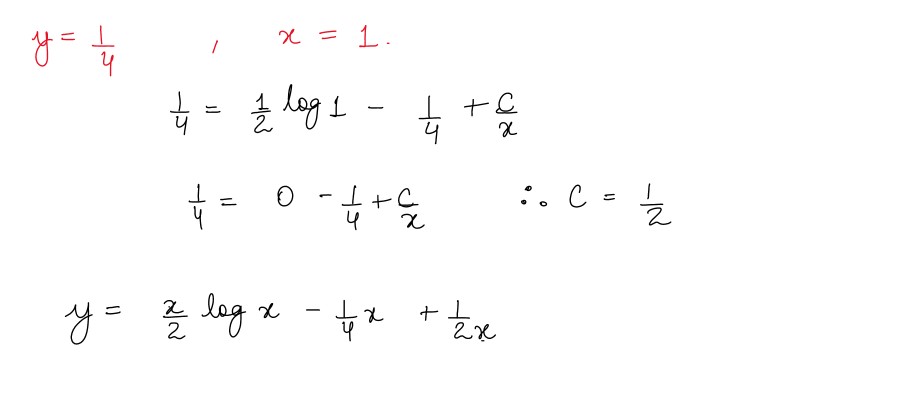 y = 1/4 , x = 1.
1/4 = 1/2 log 1 - 1/4 + C/x
1/4 = 0 - 1/4 + C/x ∴ C = 1/2
y = x/2 log x - 1/4 x + 1/2x